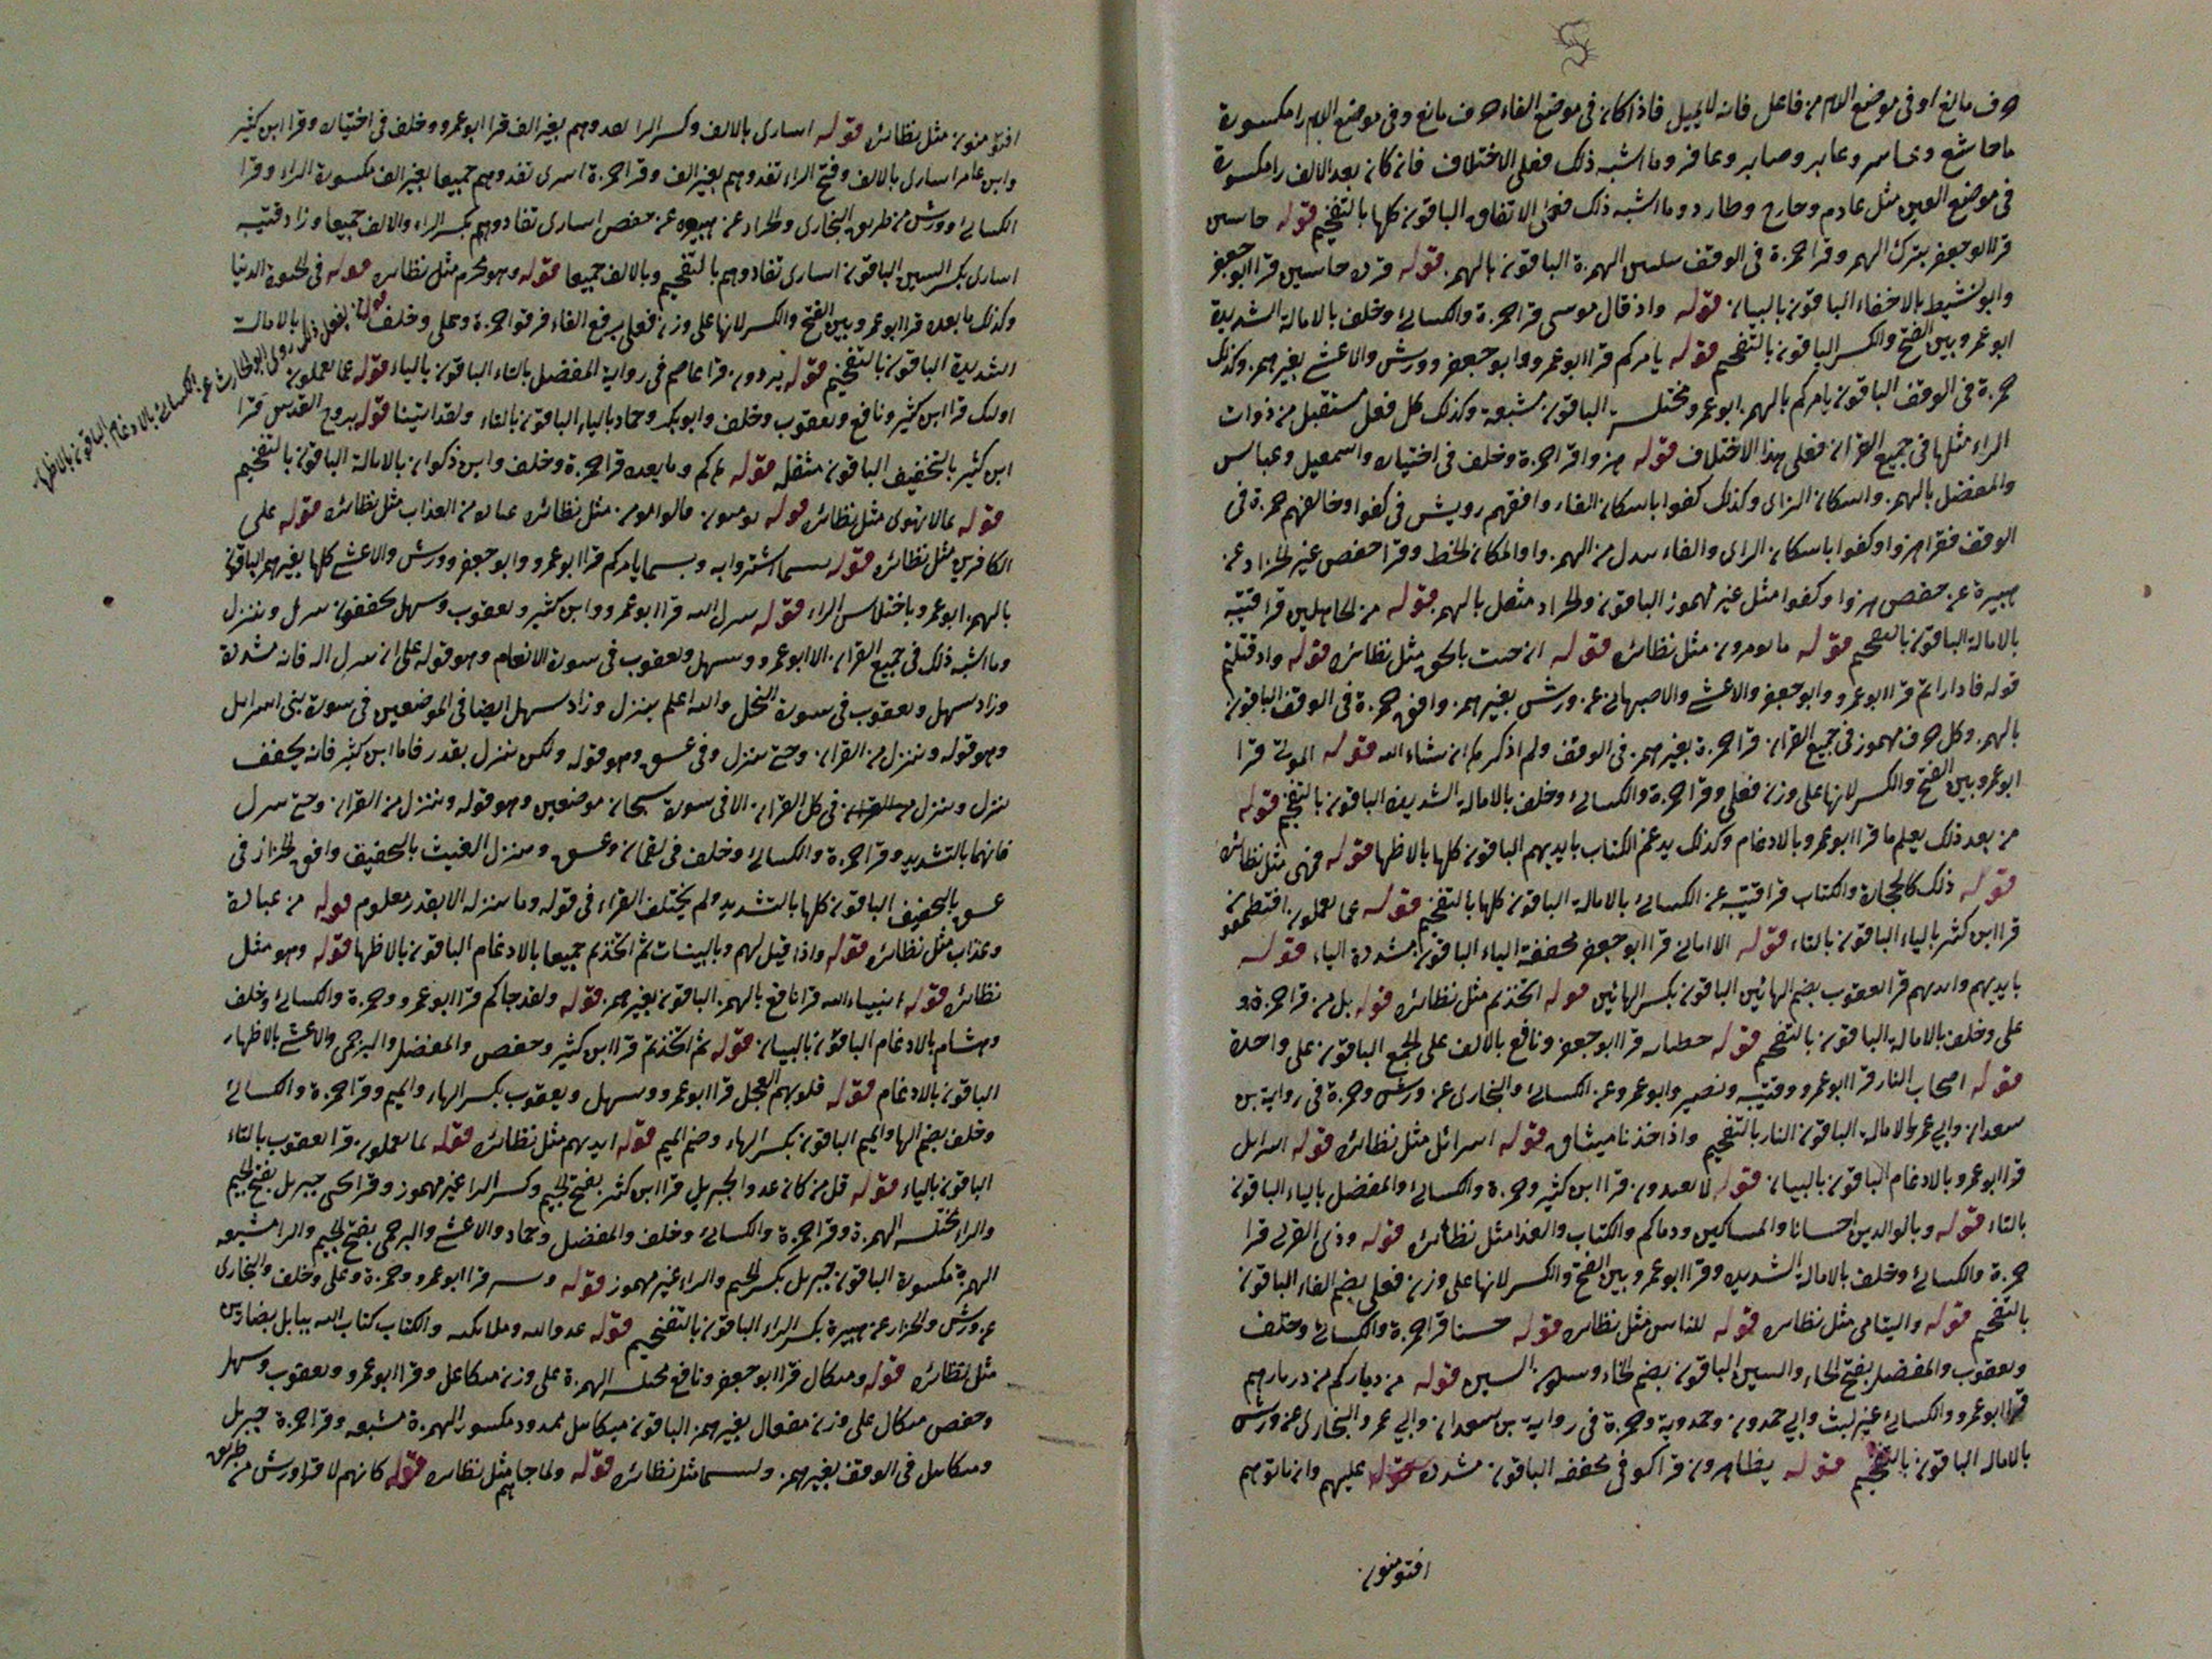 حرف مانع او في موضع اللام من فاعل فانه لا يميل فاذا كان في موضع الفاء حرف مانع وفي موضع اللام را مكسورة
وخاسر وعابر وصابر وعاقر وما اشبه ذلك فعلى الاختلاف فان كان بعد الالف را مكسورة
في موضع العين مثل عادم وحارج وطارد وما اشبه ذلك فعلى الاتفاق الباقون كلها بالتفخيم قوله خاسين
قرا ابو جعفر بترك الهمز وقرا حمزة في الوقف بتليين الهمزة الباقون بالهمز قوله قردة خاسين قرا ابو جعفر
وابو نشيط بالاخفاء الباقون بالبيان قوله واذ قال موسى قرا حمزة والكسائي وخلف بالامالة الشديدة
ابو عمرو بين الفتح والكسر الباقون بالتفخيم قوله يامركم قرا ابو عمرو وابو جعفر وورش والاعشى بغير همز وكذلك
حمزة في الوقف الباقون يامركم بالهمز ابو عمرو مختلسة الباقون مشبعة وكذلك كل فعل مستقبل من ذوات
الراء مثلها في جميع القران فعلى هذا الاختلاف قوله هزوا قرا حمزة وخلف في اختياره واسمعيل وعباس
والمفضل بالهمز واسكان الزاى وكذلك كفوا باسكان الفاء وافقهم رويس في كفوا وخالفهم حمزة في
الوقف فقرا هزوا وكفوا باسكان الزاى والفاء بدل من الهمز واوا لمكان الخط وقرا حفص غير الخزاز عن
هبيرة عن حفص هزوا وكفوا مثقل غير مهموز الباقون والخزاز مثقل بالهمز قوله من الجاهلين قرا قتيبة
بالامالة الباقون بالتفخيم قوله ما تومرون مثل نظائره قوله الان جئت بالحق مثل نظائره قوله واذ قتلتم
قوله فادارأتم قرا ابو عمرو وابو جعفر والاعشى والاصبهاني عن ورش بغير همز وافق حمزة في الوقف الباقون
بالهمز وكل حرف مهموز في جميع القران قرا حمزة بغير همز في الوقف ولم اذكرها ان شاء الله قوله الموتى قرا
ابو عمرو بين الفتح والكسر لانها على وزن فعلى وقرا حمزة والكسائي وخلف بالامالة الشديدة الباقون بالتفخيم قوله
من بعد ذلك يعلم ما قرا ابو عمرو بالادغام وكذلك يدغم الكتاب بايديهم الباقون كلها بالاظهار قوله فهى مثل نظائره
قوله ذلك كالحجارة والكتاب قرا قتيبة عن الكسائي بالامالة الباقون كلها بالتفخيم قوله عما تعملون افتطمعون
قرا ابن كثير بالياء الباقون بالتاء قوله الا امانى قرا ابو جعفر مخففة الياء الباقون مشددة الياء قوله
بايديهم وايديهم قرا يعقوب بضم الهائين الباقون بكسر الهائين قوله اتخذتم مثل نظائره قوله بلى من قرا حمزة و
على وخلف بالامالة الباقون بالتفخيم قوله خطياته قرا ابو جعفر ونافع بالالف على الجمع الباقون على واحدة
قوله اصحاب النار قرا ابو عمرو وقتيبة ونصير وابو عمرو عن الكسائي والبخارى عن ورش وحمزة في رواية بن
سعدان وابي عمرو بالامالة الباقون النار بالتفخيم واذ اخذنا ميثاق قوله اسرائل مثل نظائره قوله اسرائل
قرا ابو عمرو بالادغام الباقون بالبيان قوله لا تعبدون قرا ابن كثير وحمزة والكسائي والمفضل بالياء الباقون
بالتاء قوله وبالوالدين احسانا والمساكين ودماكم والكتاب والعذاب مثل نظائره قوله وذى القربى قرا
حمزة والكسائي وخلف بالامالة الشديدة وقرا ابو عمرو بين الفتح والكسر لانها على وزن فعلى بضم الفاء الباقون
بالتفخيم قوله واليتامى مثل نظائره قوله للناس مثل نظائره قوله حسنا قرا حمزة والكسائي وخلف
ويعقوب والمفضل بفتح الحاء والسين الباقون بضم الحاء وسكون السين قوله من دياركم من ديارهم
قرا ابو عمرو والكسائي غير ليث وابي حمدون وحمدوية وحمزة في رواية بن سعدان وابي عمرو البخارى عن ورش
بالامالة الباقون بالتفخيم قوله يظاهرون قرا كوفي مخففة الباقون مشددة قوله عليهم وان ياتوهم
افتومنون
افتؤمنون مثل نظائره قوله اسارى بالالف وكسر الرا تفدوهم بغير الف قرا ابو عمرو وخلف في اختياره وقرا ابن كثير
وابن عامر اسارى بالالف وفتح الراء تفدوهم بغير الف وقرا حمزة اسرى تفدوهم جميعا بغير الف مكسورة الراء وقرا
الكسائي وورش من طريق البخارى والخزاز عن هبيرة عن حفص اسارى تفادوهم بكسر الراء والالف جميعا وزاد قتيبة
اسارى بكسر السين الباقون اسارى تفادوهم بالتفخيم وبالالف جميعا قوله وهو محرم مثل نظائره قوله في الحيوة الدنيا
وكذلك ما بعده قرا ابو عمرو بين الفتح والكسر لانها على وزن فعلى برفع الفاء قرا حمزة وعلى وخلف بالامالة
قوله من يفعل ذلك روى ابو الحارث عن الكسائي بالادغام الباقون بالاظهار
الشديدة الباقون بالتفخيم قوله يردون قرا عاصم في رواية المفضل بالتاء الباقون بالياء قوله عما تعملون
اولئك قرا ابن كثير ونافع ويعقوب وخلف وابو بكر وحماد بالياء الباقون بالتاء ولقد اتينا قوله بروح القدس قرا
ابن كثير بالتخفيف الباقون مثقلة قوله جاكم وما بعده قرا حمزة وخلف وابن ذكوان بالامالة الباقون بالتفخيم
قوله بما لا تهوى مثل نظائره قوله يومنون قالوا نومن مثل نظائره عباده من العذاب مثل نظائره قوله على
الكافرين مثل نظائره قوله بيسما اشتروا به وبيسما يامركم قرا ابو عمرو وابو جعفر وورش والاعشى كلها بغير همز الباقون
بالهمز ابو عمرو باختلاس الراء قوله ينزل الله قرا ابو عمرو وابن كثير ويعقوب وسهل مخففون ينزل وننزل
وما اشبه ذلك في جميع القران الا ابو عمرو وسهل ويعقوب في سورة الانعام وهو قوله على ان ينزل اية فانه مشددة
وزاد سهل ويعقوب في سورة النحل والله اعلم بما ينزل وزاد سهل ايضا في الموضعين في سورة بني اسرايل
وهو قوله وننزل من القران وحتى تنزل وفي عسق وهو قوله ولكن ينزل بقدر فاما ابن كثير فانه يخفف
ينزل وننزل في كل القران الا في سورة سبحان موضعين وهو قوله وننزل من القران وحتى تنزل
فانهما بالتشديد وقرا حمزة والكسائي وخلف في لقمان وعسق وينزل الغيث بالتخفيف وافق الخزاز في
عسق بالتخفيف الباقون كلها بالتشديد ولم يختلف القراء في قوله وما ننزله الا بقدر معلوم قوله من عباده
وعذاب مثل نظائره قوله واذا قيل لهم وبالبينات ثم اتخذتم جميعا بالادغام الباقون بالاظهار قوله وهو مثل
نظائره قوله انبياء الله قرا نافع بالهمز الباقون بغير همز قوله ولقد جاكم قرا ابو عمرو وحمزة والكسائي وخلف
وهشام بالادغام الباقون بالبيان قوله ثم اتخذتم قرا ابن كثير وحفص والمفضل والبرجمى والاعشى بالاظهار
الباقون بالادغام قوله قلوبهم العجل قرا ابو عمرو وسهل ويعقوب بكسر الهاء والميم وقرا حمزة والكسائي
وخلف بضم الها والميم الباقون بكسر الهاء وضم الميم قوله ايديهم مثل نظائره قوله بما يعملون قرا يعقوب بالتاء
الباقون بالياء قوله قل من كان عدوا لجبريل قرا ابن كثير بفتح الجيم وكسر الرا غير مهموز وقرا يحيى جبريل بفتح الجيم
والراء مختلسة الهمزة وقرا حمزة والكسائي وخلف والمفضل وحماد والاعشى والبرجمى بفتح الجيم والرا مشبعه
الهمزة مكسورة الباقون جبريل بكسر الجيم والراء غير مهموز قوله وبشرى قرا ابو عمرو وحمزة وعلى وخلف والبخارى
عن ورش والخزاز عن هبيرة بكسر الراء الباقون بالتفخيم قوله عدوا لله وملائكته والكتاب كتاب الله ببابل بضارين
مثل نظائره قوله وميكال قرا ابو جعفر ونافع مختلسة الهمزة على وزن ميكاعل وقرا ابو عمرو ويعقوب وسهل
وحفص ميكال على وزن مفعال بغير همز الباقون ميكائل ممدود مكسور الهمزة مشبعه وقرا حمزة جبريل
وميكائل في الوقف بغير همز ولبيسما مثل نظائره قوله ولما جاهم مثل نظائره قوله كانهم لا قرا ورش من طريق